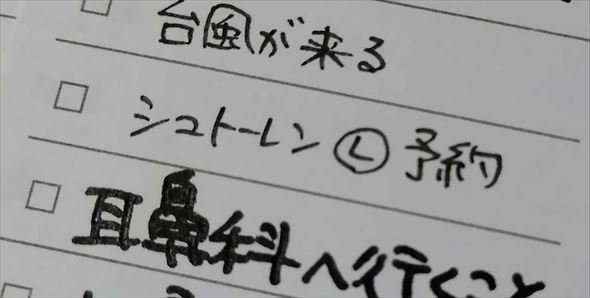 台風が来る
シュトーレン Ⓛ 予約
耳鼻科へ行くこと